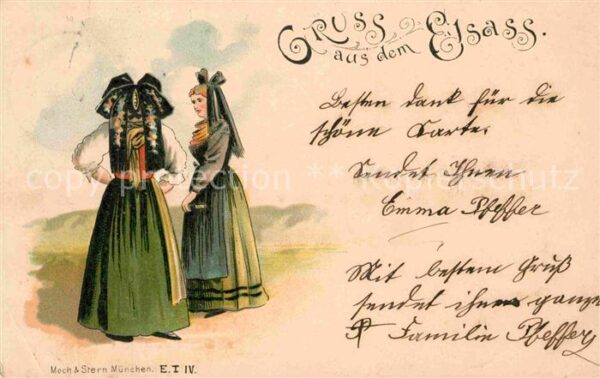 Gruss
aus dem Elsass.
Besten Dank für die
schöne Karte.
Sendet Ihnen
Emma Pfeffer
Mit bestem Gruß
sendet ihnen ganze
Familie Pfeffer
copyright protection Kopierschutz
Moch & Stern München. E.I IV.